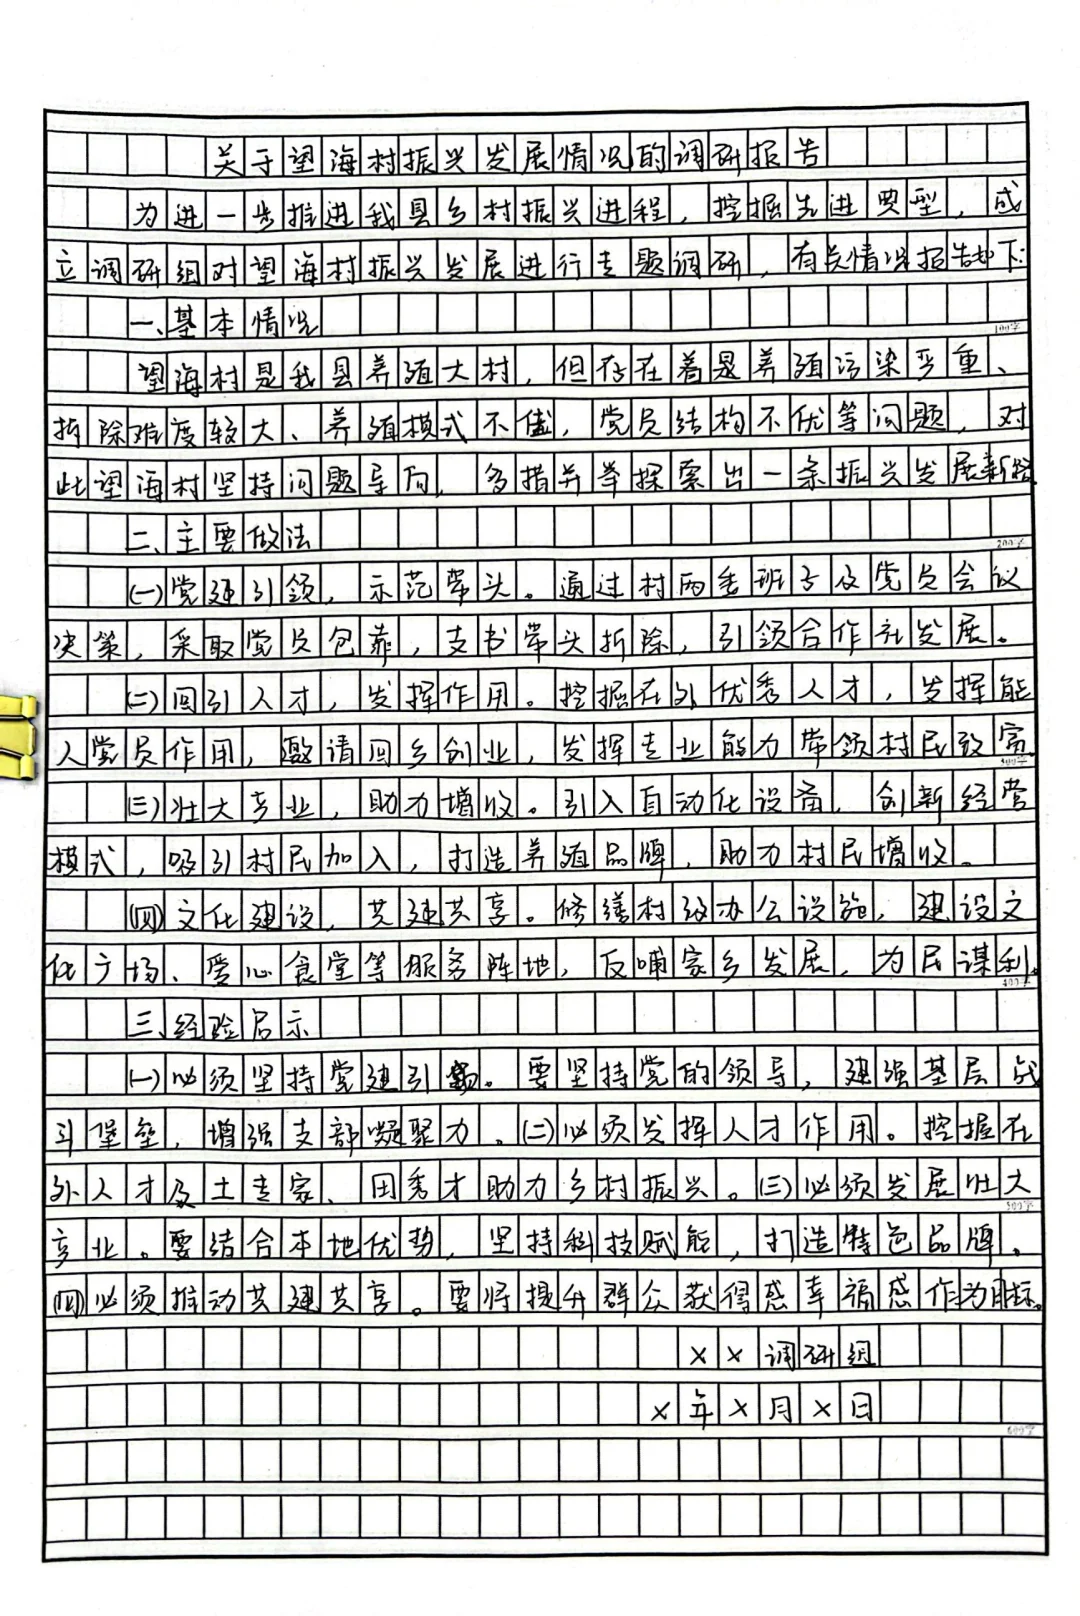 关于望海村振兴发展情况的调研报告
为进一步推进我县乡村振兴进程，挖掘先进典型，成
立调研组对望海村振兴发展进行专题调研，有关情况报告如下：
一、基本情况
100字
望海村是我县养殖大村，但存在着是养殖污染严重、
拆除难度较大、养殖模式不佳，党员结构不优等问题，对
此望海村坚持问题导向，多措并举探索出一条振兴发展新路
二、主要做法
200字
(一)党建引领，示范带头。通过村两委班子及党员会议
决策，采取党员包靠，支书带头拆除，引领合作社发展。
(二)回引人才，发挥作用。挖掘在外优秀人才，发挥能
人党员作用，邀请回乡创业，发挥专业能力带领村民致富
300字
(三)壮大产业，助力增收。引入自动化设备，创新经营
模式，吸引村民加入，打造养殖品牌，助力村民增收。
(四)文化建设，共建共享。修缮村级办公设施，建设文
化广场、爱心食堂等服务阵地，反哺家乡发展，为民谋利。
400字
三、经验启示
(一)必须坚持党建引领。要坚持党的领导，建强基层战
斗堡垒，增强支部凝聚力。(二)必须发挥人才作用。挖掘在
外人才及土专家、田秀才助力乡村振兴。(三)必须发展壮大
500字
产业。要结合本地优势，坚持科技赋能，打造特色品牌。
(四)必须推动共建共享。要将提升群众获得感幸福感作为目标。
××调研组
×年×月×日
600字